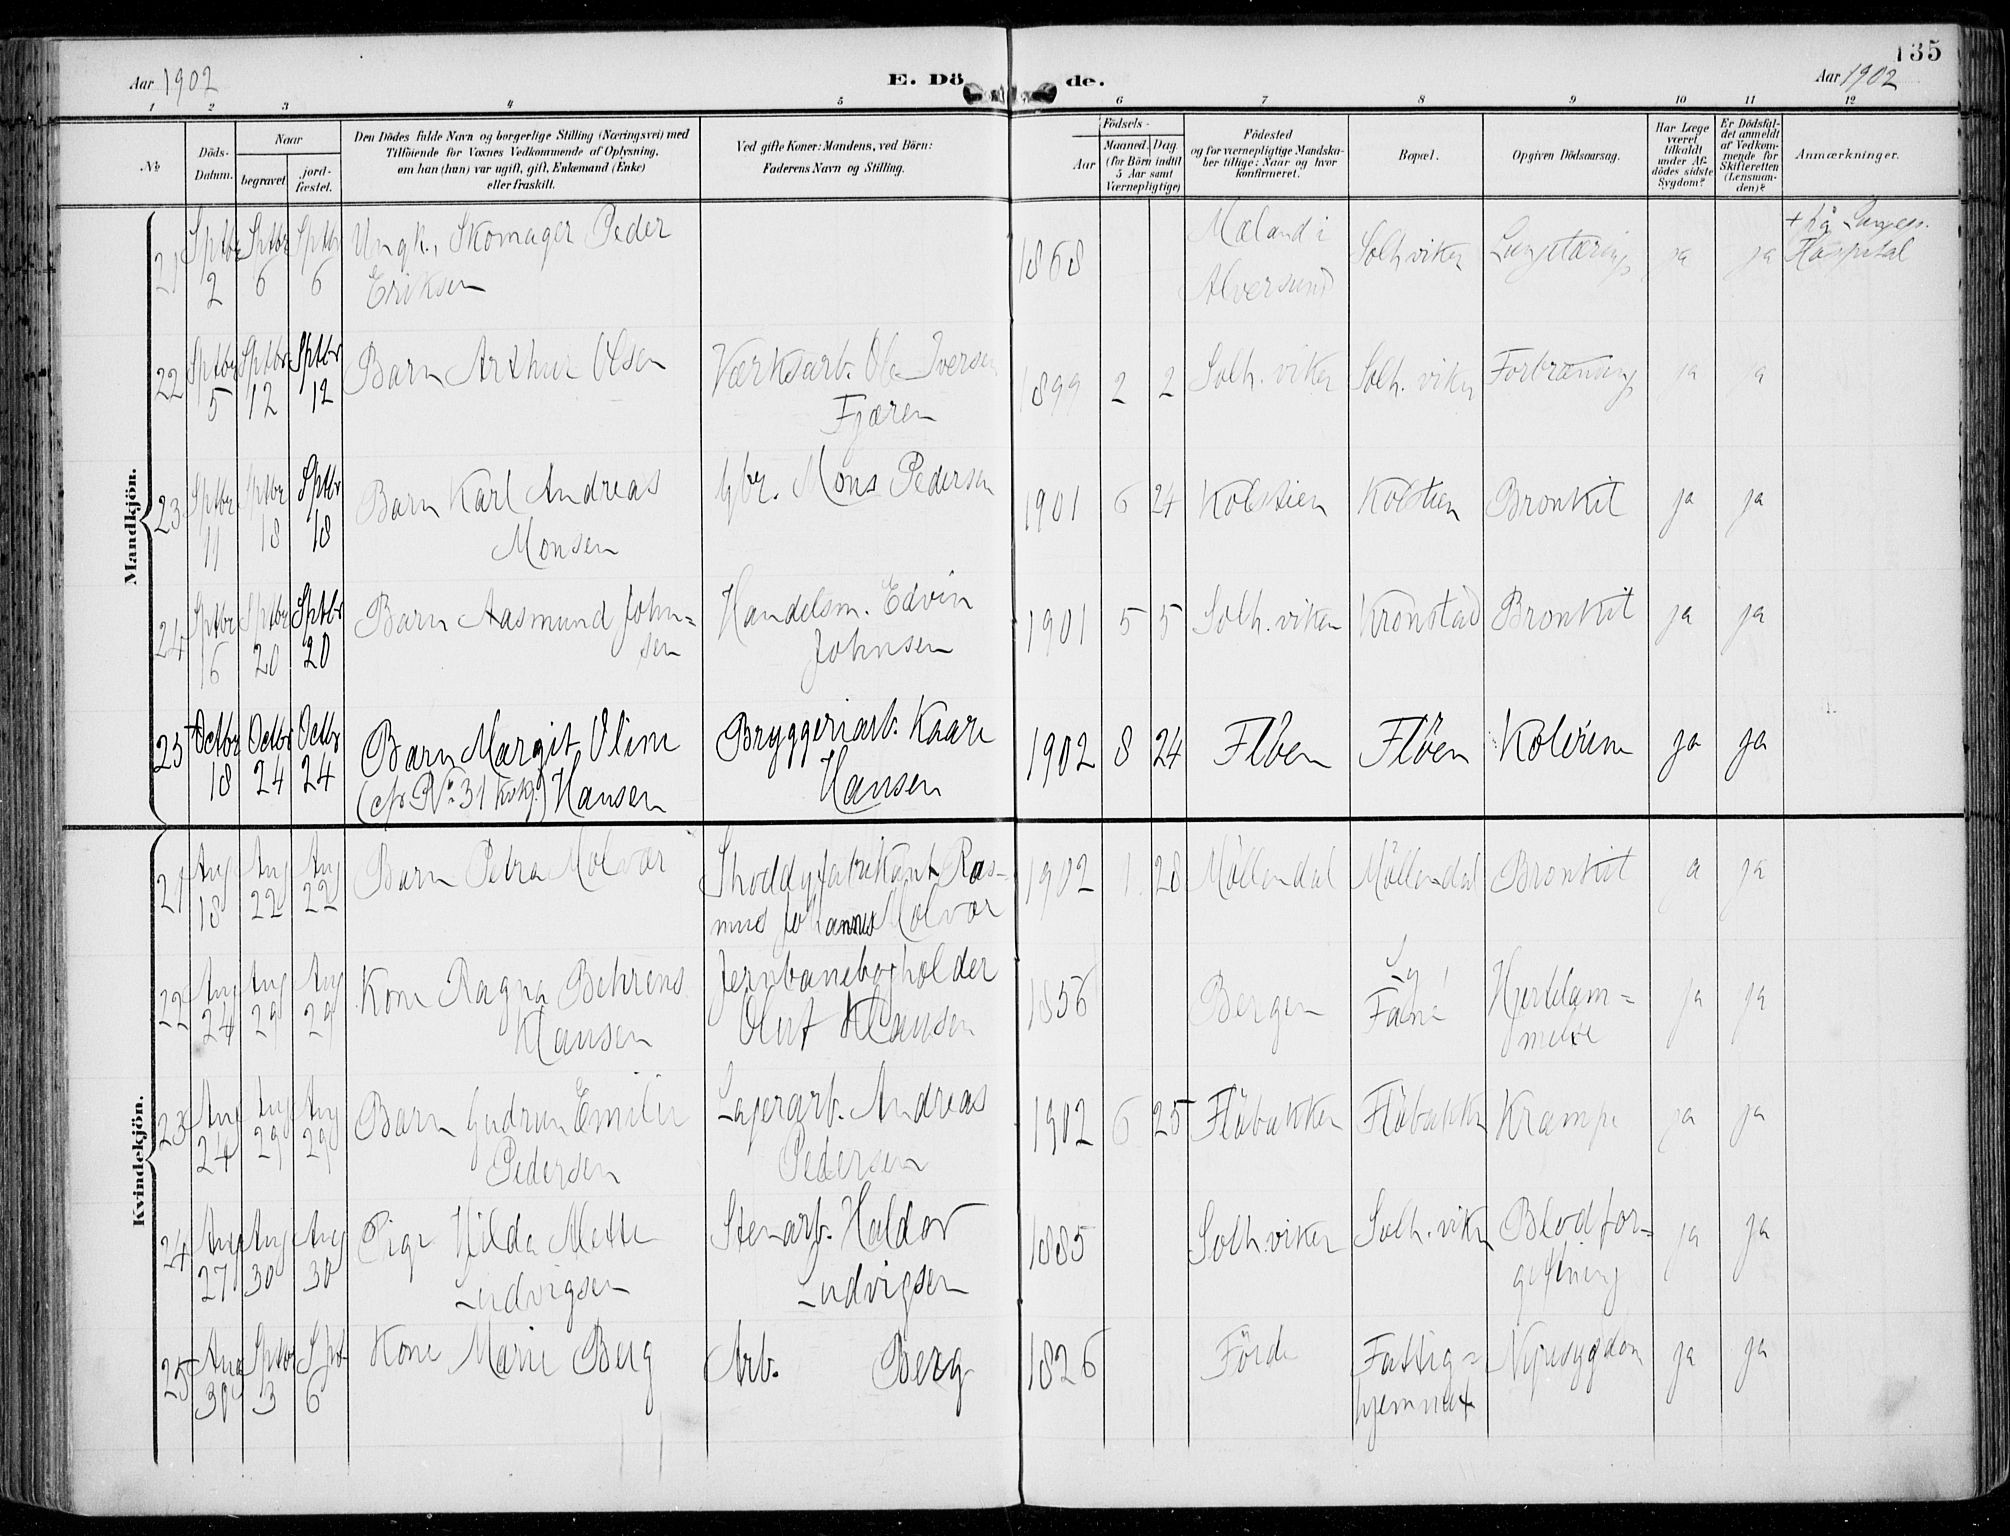 135
Aar 1902
E. Dö de.
Aar 1902
1 2 3 4 5 6 7 8 9 10 11 12
No
Döds-
Datum.
Naar
begravet.
jord-
fæstet.
Den Dödes fulde Navn og borgerlige Stilling (Næringsvei) med
Tilföiende for Voxnes Vedkommende af Oplysning,
om han (hun) var ugift, gift, Enkemand (Enke)
eller fraskilt.
Ved gifte Koner: Mandens, ved Börn:
Faderens Navn og Stilling.
Födsels-
Aar
Maaned. Dag.
(for Börn indtil
5 Aar samt
Værnepligtige)
Födested
og for værnepligtige Mandska-
ber tillige: Naar og hvor
konfirmeret.
Bopæl.
Opgiven Dödsaarsag.
Har Læge
været
tilkaldt
under Af-
dödes sidste
Sygdom?
Er Dödsfal-
det anmeldt
af Vedkom-
mende for
Skifteretten
(Lensman-
den)?
Anmærkninger.
Mandkjön.
21 Sptbr 2 Sptbr 6 Sptbr 6 Ungk., Skomager Peder
Eriksen
1868 Mæland i
Alversund
Solh.viken Lungetæring ja ja
Hospital
22 Sptbr 5 Sptbr 12 Sptbr 12 Barn Arthur Olsen Værksarb. Ole Iversen
Fjæren
1899 2 2 Solh. viken Solh. viken Forbrænning ja ja
23 Sptbr 11 Sptbr 18 Sptbr 18 Barn Karl Andreas
Monsen
Gbr. Mons Pedersen
1901 6 24 Kolstien Kolstien Bronkit ja ja
24 Sptbr 16 Sptbr 20 Sptbr 20 Barn Aasmund John=
sen
Handelsm. Edvin
Johnsen
1901 5 5 Solh. viken Kronstad Bronkit ja ja
25 Octbr 18 Octbr 24 Octbr 24 Barn Margit Oline
(cfr No 31 Kvkj.) Hansen
Bryggeriarb. Kaare
Hansen
1902 8 24 Flöen Flöen Kolerine ja ja
Kvindekjön.
21 Aug 18 Aug 22 Aug 22 Barn Petra Molvær Shoddyfabrikant Ras-
mus Johannes Molvær
1902 1 28 Möllendal Möllendal Bronkit ja ja
22 Aug 24 Aug 29 Aug 29 Kone Ragna Behrens
Klausen
Jernbanebogholder
Oluf Klausen
1856 Bergen
Hjertelam=
melse
ja ja
23 Aug 24 Aug 29 Aug 29 Barn Gudrun Emilie
Pedersen
Lagerarb. Andreas
Pedersen
1902 6 25 Flöbakken Flöbakken Krampe ja ja
24 Aug 27 Aug 30 Aug 30 Pige Hilda Mette
Ludvigsen
Stenarb. Haldor
Ludvigsen
1885 Solh.viken Solh. viken Blodfor-
giftning
ja ja
25 Aug 30 Sptbr 3 Spt. 6 Kone Marie Berg Arb. Berg
1826 Förde Fattig=
hjemmet
Nyresygdom ja ja